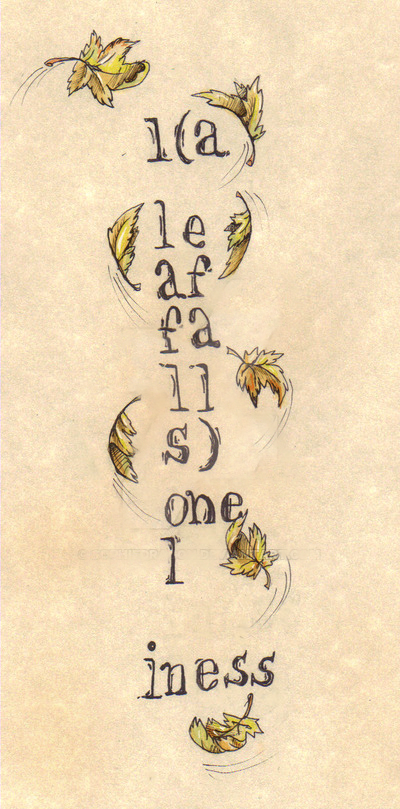 l(a
le
af
fa
ll
s)
one
l
iness